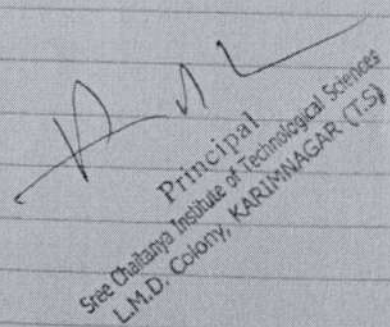 Principal
Sree Chaitanya Institute of Technological Sciences
L.M.D. Colony, KARIMNAGAR (T.S)